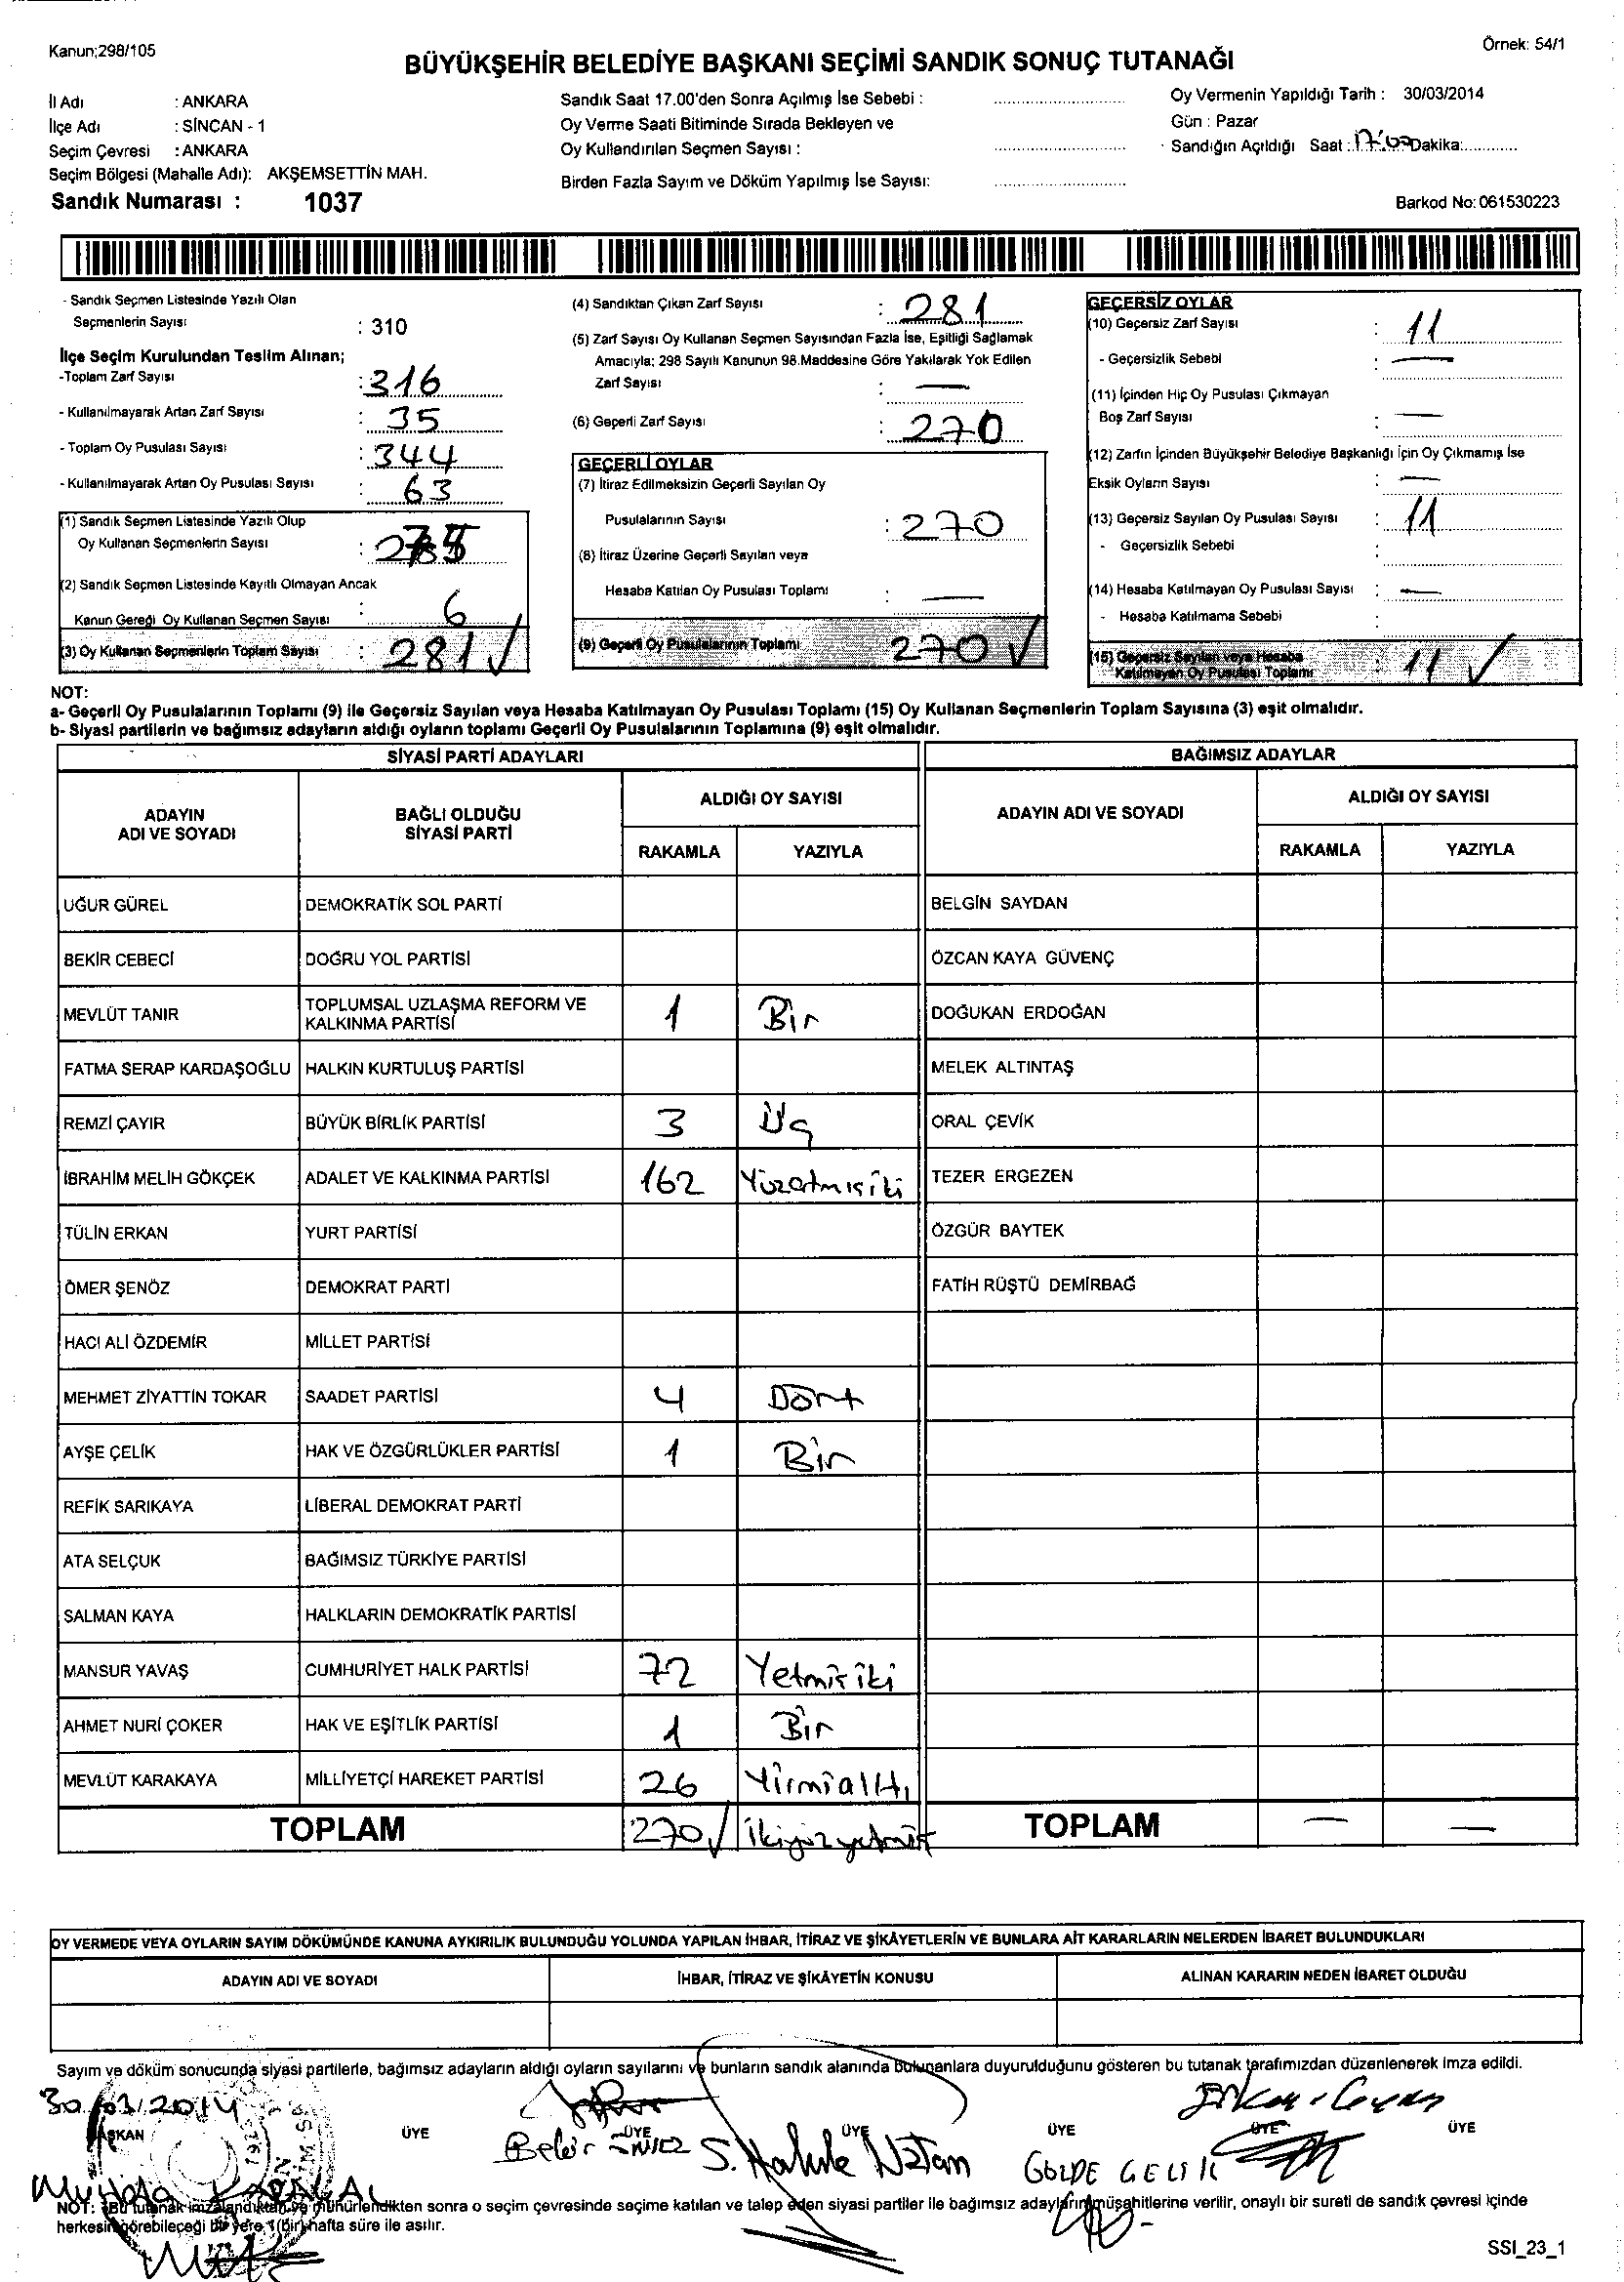 Kanun;298/105
Örnek: 54/1
BÜYÜKŞEHİR BELEDİYE BAŞKANI SEÇİMİ SANDIK SONUÇ TUTANAĞI
İl Adı : ANKARA
İlçe Adı : SİNCAN - 1
Seçim Çevresi : ANKARA
Seçim Bölgesi (Mahalle Adı): AKŞEMSETTİN MAH.
Sandık Numarası : 1037
Sandık Saat 17.00'den Sonra Açılmış İse Sebebi :
Oy Verme Saati Bitiminde Sırada Bekleyen ve
Oy Kullandırılan Seçmen Sayısı :
Birden Fazla Sayım ve Döküm Yapılmış İse Sayısı:
Oy Vermenin Yapıldığı Tarih : 30/03/2014
Gün : Pazar
Sandığın Açıldığı Saat : 17:00 Dakika:
Barkod No: 061530223
- Sandık Seçmen Listesinde Yazılı Olan
Seçmenlerin Sayısı : 310
İlçe Seçim Kurulundan Teslim Alınan;
-Toplam Zarf Sayısı : 316
- Kullanılmayarak Artan Zarf Sayısı : 35
- Toplam Oy Pusulası Sayısı : 344
- Kullanılmayarak Artan Oy Pusulası Sayısı : 63
(1) Sandık Seçmen Listesinde Yazılı Olup
Oy Kullanan Seçmenlerin Sayısı : 275
(2) Sandık Seçmen Listesinde Kayıtlı Olmayan Ancak
Kanun Gereği Oy Kullanan Seçmen Sayısı : 6
(3) Oy Kullanan Seçmenlerin Toplam Sayısı : 281 ✓
(4) Sandıktan Çıkan Zarf Sayısı : 281
(5) Zarf Sayısı Oy Kullanan Seçmen Sayısından Fazla İse, Eşitliği Sağlamak
Amacıyla; 298 Sayılı Kanunun 98.Maddesine Göre Yakılarak Yok Edilen
Zarf Sayısı : —
(6) Geçerli Zarf Sayısı : 270
GEÇERLİ OYLAR
(7) İtiraz Edilmeksizin Geçerli Sayılan Oy
Pusulalarının Sayısı : 270
(8) İtiraz Üzerine Geçerli Sayılan veya
Hesaba Katılan Oy Pusulası Toplamı : —
(9) Geçerli Oy Pusulalarının Toplamı 270 ✓
GEÇERSİZ OYLAR
(10) Geçersiz Zarf Sayısı : 11
- Geçersizlik Sebebi : —
(11) İçinden Hiç Oy Pusulası Çıkmayan
Boş Zarf Sayısı : —
(12) Zarfın İçinden Büyükşehir Belediye Başkanlığı İçin Oy Çıkmamış İse
Eksik Oyların Sayısı : —
(13) Geçersiz Sayılan Oy Pusulası Sayısı : 11
- Geçersizlik Sebebi :
(14) Hesaba Katılmayan Oy Pusulası Sayısı : —
- Hesaba Katılmama Sebebi :
(15) Geçersiz Sayılan veya Hesaba
Katılmayan Oy Pusulası Toplamı : 11 ✓
NOT:
a- Geçerli Oy Pusulalarının Toplamı (9) ile Geçersiz Sayılan veya Hesaba Katılmayan Oy Pusulası Toplamı (15) Oy Kullanan Seçmenlerin Toplam Sayısına (3) eşit olmalıdır.
b- Siyasi partilerin ve bağımsız adayların aldığı oyların toplamı Geçerli Oy Pusulalarının Toplamına (9) eşit olmalıdır.
SİYASİ PARTİ ADAYLARI
BAĞIMSIZ ADAYLAR
ADAYIN ADI VE SOYADI
BAĞLI OLDUĞU SİYASİ PARTİ
ALDIĞI OY SAYISI
RAKAMLA YAZIYLA
ADAYIN ADI VE SOYADI
ALDIĞI OY SAYISI
RAKAMLA YAZIYLA
UĞUR GÜREL DEMOKRATİK SOL PARTİ BELGİN SAYDAN
BEKİR CEBECİ DOĞRU YOL PARTİSİ ÖZCAN KAYA GÜVENÇ
MEVLÜT TANIR TOPLUMSAL UZLAŞMA REFORM VE KALKINMA PARTİSİ 1 Bir DOĞUKAN ERDOĞAN
FATMA SERAP KARDAŞOĞLU HALKIN KURTULUŞ PARTİSİ MELEK ALTINTAŞ
REMZİ ÇAYIR BÜYÜK BİRLİK PARTİSİ 3 Üç ORAL ÇEVİK
İBRAHİM MELİH GÖKÇEK ADALET VE KALKINMA PARTİSİ 162 Yüzatmışiki TEZER ERGEZEN
TÜLİN ERKAN YURT PARTİSİ ÖZGÜR BAYTEK
ÖMER ŞENÖZ DEMOKRAT PARTİ FATİH RÜŞTÜ DEMİRBAĞ
HACI ALİ ÖZDEMİR MİLLET PARTİSİ
MEHMET ZİYATTİN TOKAR SAADET PARTİSİ 4 Dört
AYŞE ÇELİK HAK VE ÖZGÜRLÜKLER PARTİSİ 1 Bir
REFİK SARIKAYA LİBERAL DEMOKRAT PARTİ
ATA SELÇUK BAĞIMSIZ TÜRKİYE PARTİSİ
SALMAN KAYA HALKLARIN DEMOKRATİK PARTİSİ
MANSUR YAVAŞ CUMHURİYET HALK PARTİSİ 72 Yetmişiki
AHMET NURİ ÇOKER HAK VE EŞİTLİK PARTİSİ 1 Bir
MEVLÜT KARAKAYA MİLLİYETÇİ HAREKET PARTİSİ 26 Yirmialtı
TOPLAM 270 ✓ ikiyüzyetmiş TOPLAM — —
OY VERMEDE VEYA OYLARIN SAYIM DÖKÜMÜNDE KANUNA AYKIRILIK BULUNDUĞU YOLUNDA YAPILAN İHBAR, İTİRAZ VE ŞİKÂYETLERİN VE BUNLARA AİT KARARLARIN NELERDEN İBARET BULUNDUKLARI
ADAYIN ADI VE SOYADI İHBAR, İTİRAZ VE ŞİKÂYETİN KONUSU ALINAN KARARIN NEDEN İBARET OLDUĞU
Sayım ve döküm sonucunda siyasi partilerle, bağımsız adayların aldığı oyların sayılarını ve bunların sandık alanında bulunanlara duyurulduğunu gösteren bu tutanak tarafımızdan düzenlenerek imza edildi.
30/03/2014
BAŞKAN ÜYE ÜYE ÜYE ÜYE ÜYE ÜYE
Bekir S. Hakile
NOT: Bu tutanak imzalandıktan ve mühürlendikten sonra o seçim çevresinde seçime katılan ve talep eden siyasi partiler ile bağımsız adayların müşahitlerine verilir, onaylı bir sureti de sandık çevresi içinde
herkesin görebileceği bir yere 1(bir) hafta süre ile asılır.
SSI_23_1